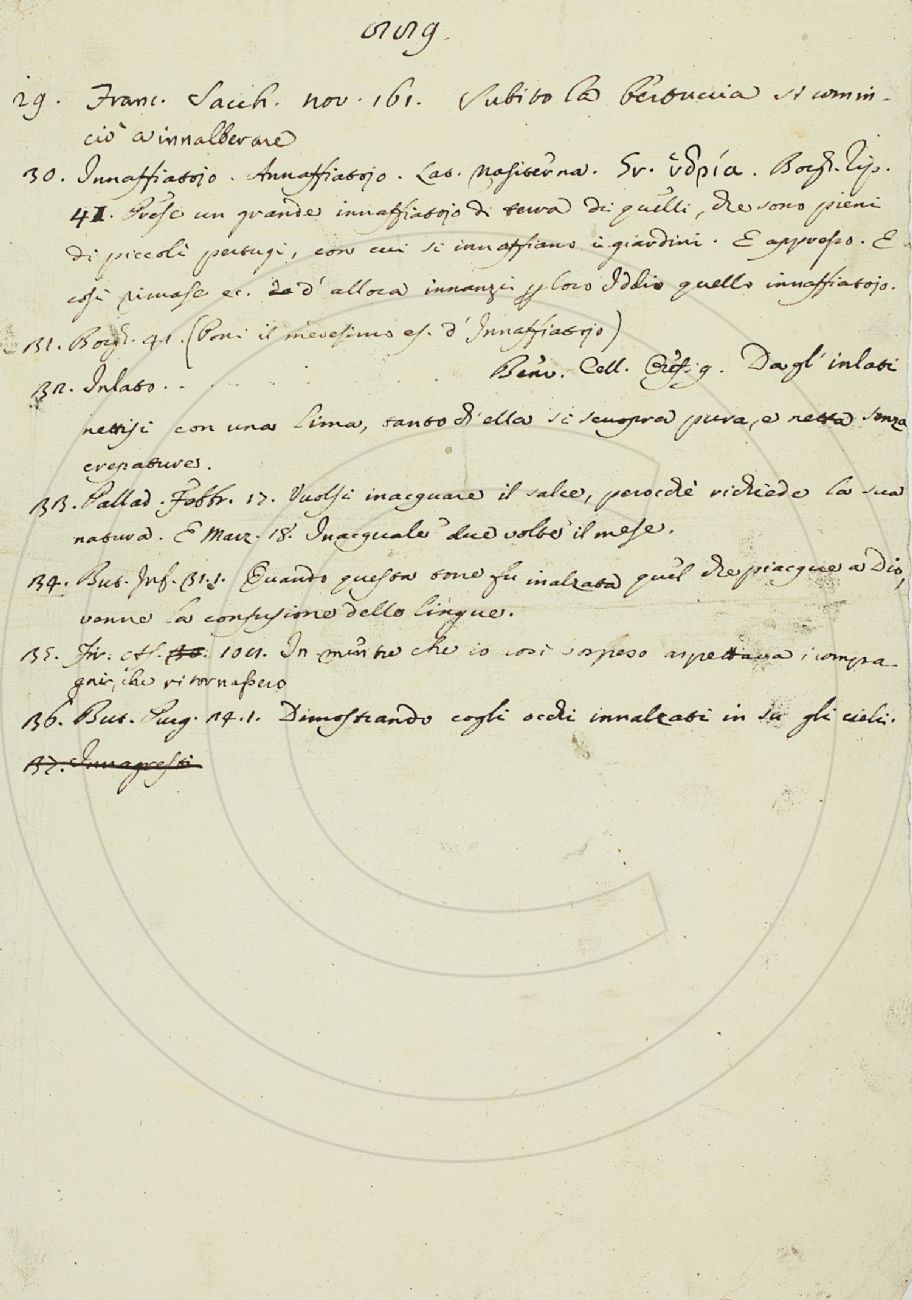 559.
29. Franc. Sacch. nov. 161. Subito la bertuccia si comin-
ciò a innalberare
30. Innaffiatojo. Annaffiatojo. Lat. nasiterna. Gr. ὑδρία. Borgh. Rip.
41. Prese un grande innaffiatojo di terra di quelli, che sono pieni
di piccoli pertugi, con cui si innaffiano i giardini. E appresso. E
così rimase ec. d'allora innanzi loro Iddio quello innaffiatojo.
31. Borgh. 41. (Poni il medesimo es. d'Innaffiatojo)
32. Inlato . . . . . . . Benv. Cell. Oref. 9. Dagl'inlati
nettisi con una lima, tanto ch'ella si scuopra pura, e netta senza
crepature.
33. Pallad. Febbr. 17. Vuolsi inacquare il salce, perocchè richiede la sua
natura. E Marz. 18. Inacquale due volte il mese.
34. But. Inf. 31.1. Quando questa torre fu inalzata quel che piacque a Dio,
venne la confusione delle lingue.
35. Fir. As. 101. In mentre che io così sospeso aspettava i compa-
gni, che ritornassero
36. But. Purg. 14.1. Dimostrando cogli occhi innalzati in su gli cieli.
37. Innapresti